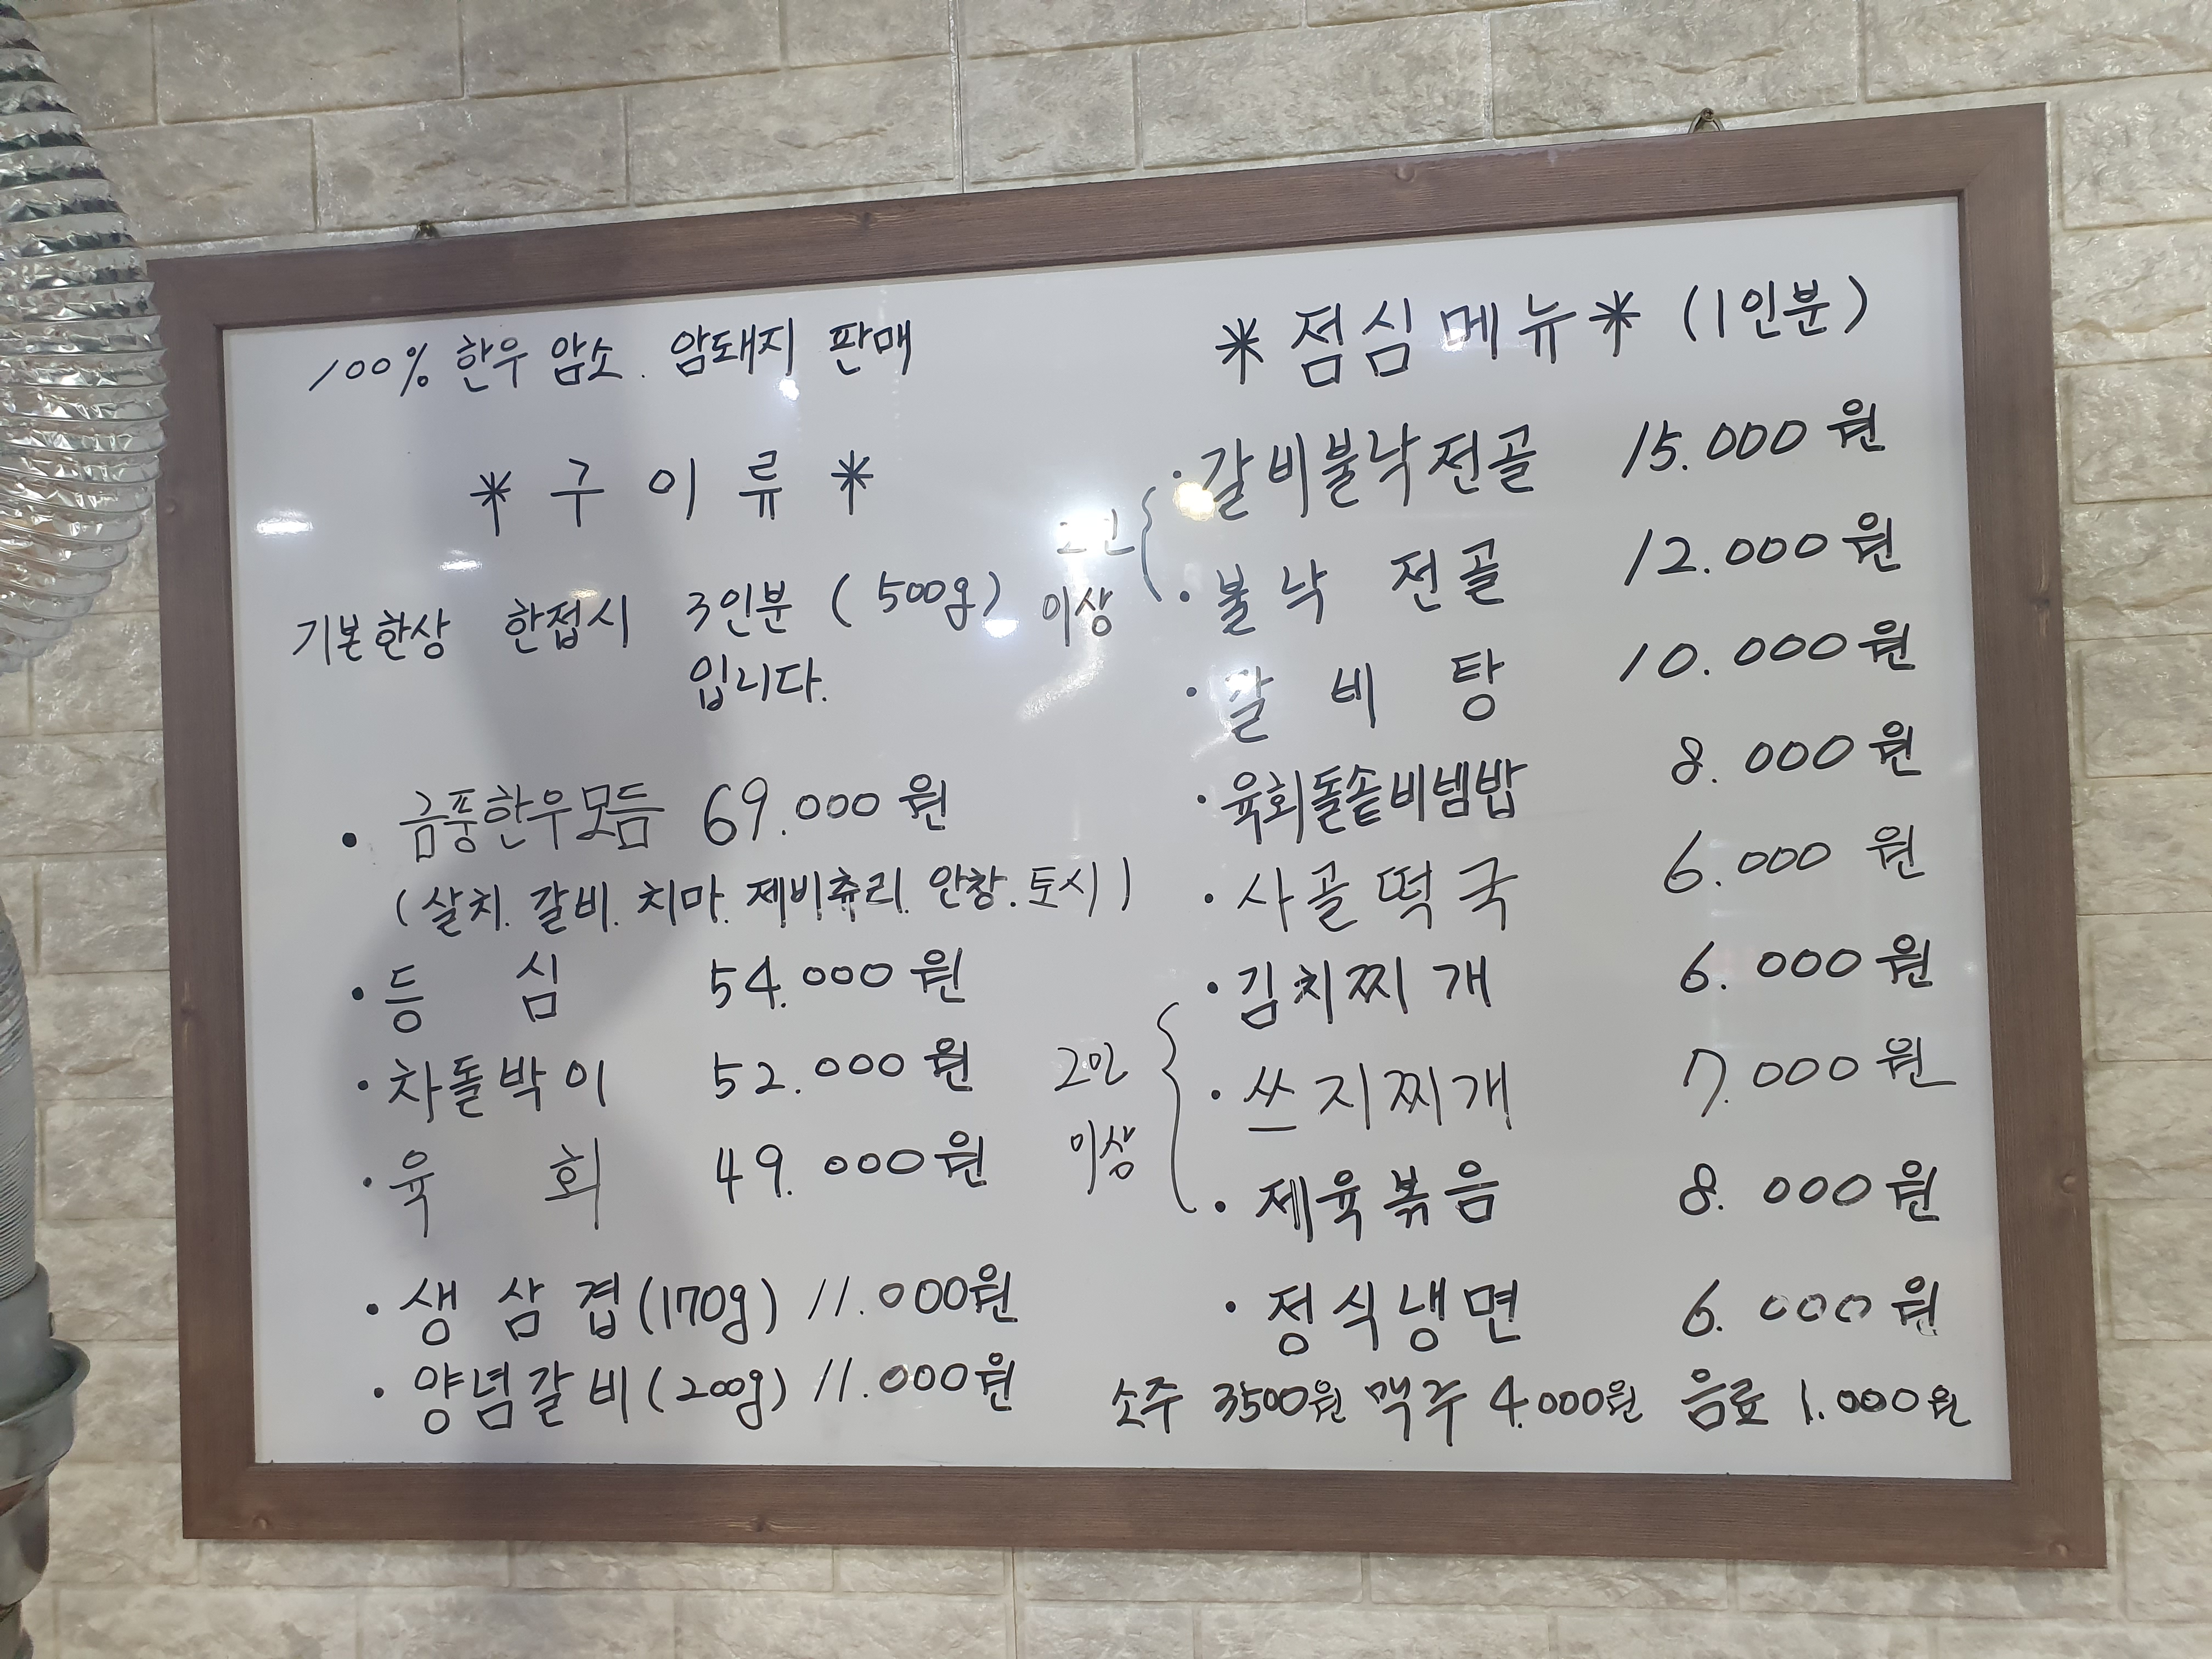 100% 한우 암소. 암돼지 판매
* 구 이 류 *
기본한상 한접시 3인분 (500g)
입니다.
· 금풍한우모듬 69.000원
(살치. 갈비. 치마. 제비츄리. 안창. 토시)
· 등 심 54.000원
· 차돌박이 52.000원
· 육 회 49.000원
· 생 삼 겹 (170g) 11.000원
· 양념갈비 (200g) 11.000원
* 점심메뉴 * (1인분)
· 갈비불낙전골 15.000원
2인
이상
· 불낙 전골 12.000원
· 갈 비 탕 10.000원
· 육회돌솥비빔밥 8.000원
· 사골떡국 6.000원
· 김치찌개 6.000원
2인
이상
· 쓰지찌개 7.000원
· 제육볶음 8.000원
· 정식냉면 6.000원
소주 3500원 맥주 4.000원 음료 1.000원